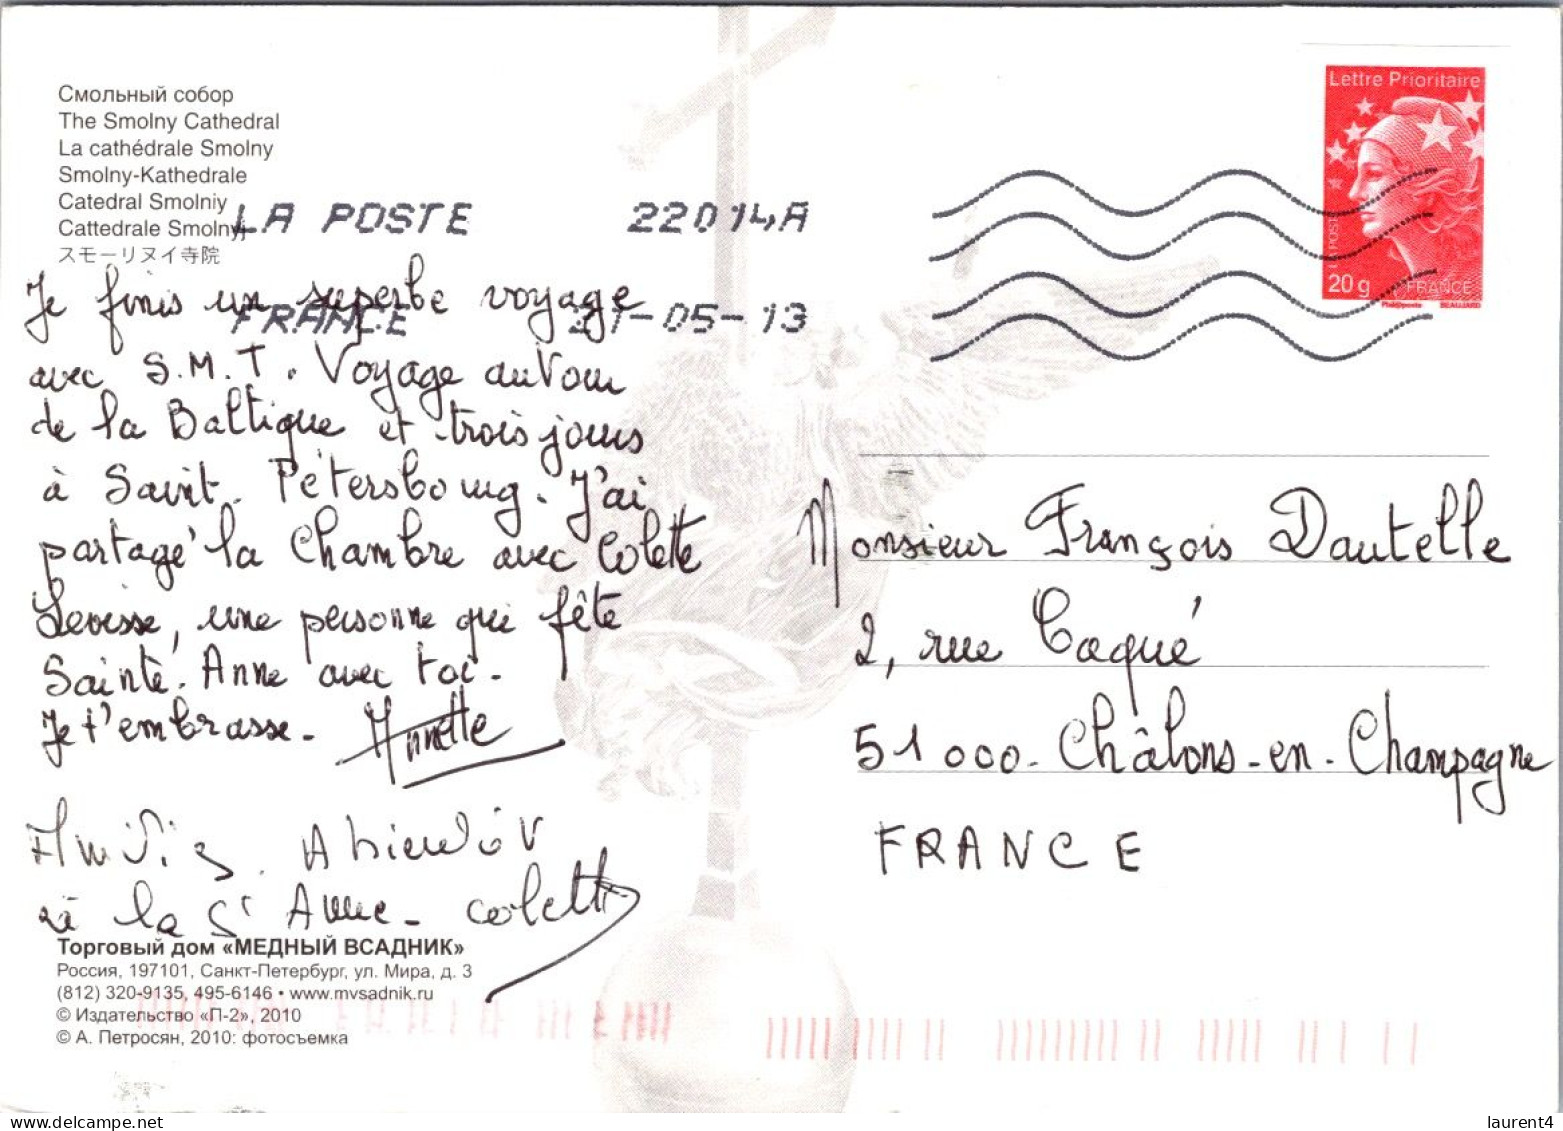 Смольный собор
The Smolny Cathedral
La cathédrale Smolny
Smolny-Kathedrale
Catedral Smolniy
Cattedrale Smolnyj
スモーリヌイ寺院
LA POSTE 22014A
FRANCE 21-05-13
Lettre Prioritaire
LA POSTE
20g FRANCE
Phil@poste BEAUJARD
Je finis un superbe voyage
avec S.M.T. Voyage autour
de la Baltique et trois jours
à Saint-Pétersbourg. J'ai
partagé la chambre avec Colette
Levisse, une personne qui fête
Sainte-Anne avec toi.
Je t'embrasse. Annette
Amitiés. A bientôt
à la St Anne - Colette
Monsieur François Dautelle
2, rue Caqué
51000 - Châlons-en-Champagne
FRANCE
Торговый дом «МЕДНЫЙ ВСАДНИК»
Россия, 197101, Санкт-Петербург, ул. Мира, д. 3
(812) 320-9135, 495-6146 • www.mvsadnik.ru
© Издательство «П-2», 2010
© А. Петросян, 2010: фотосъемка
laurent4